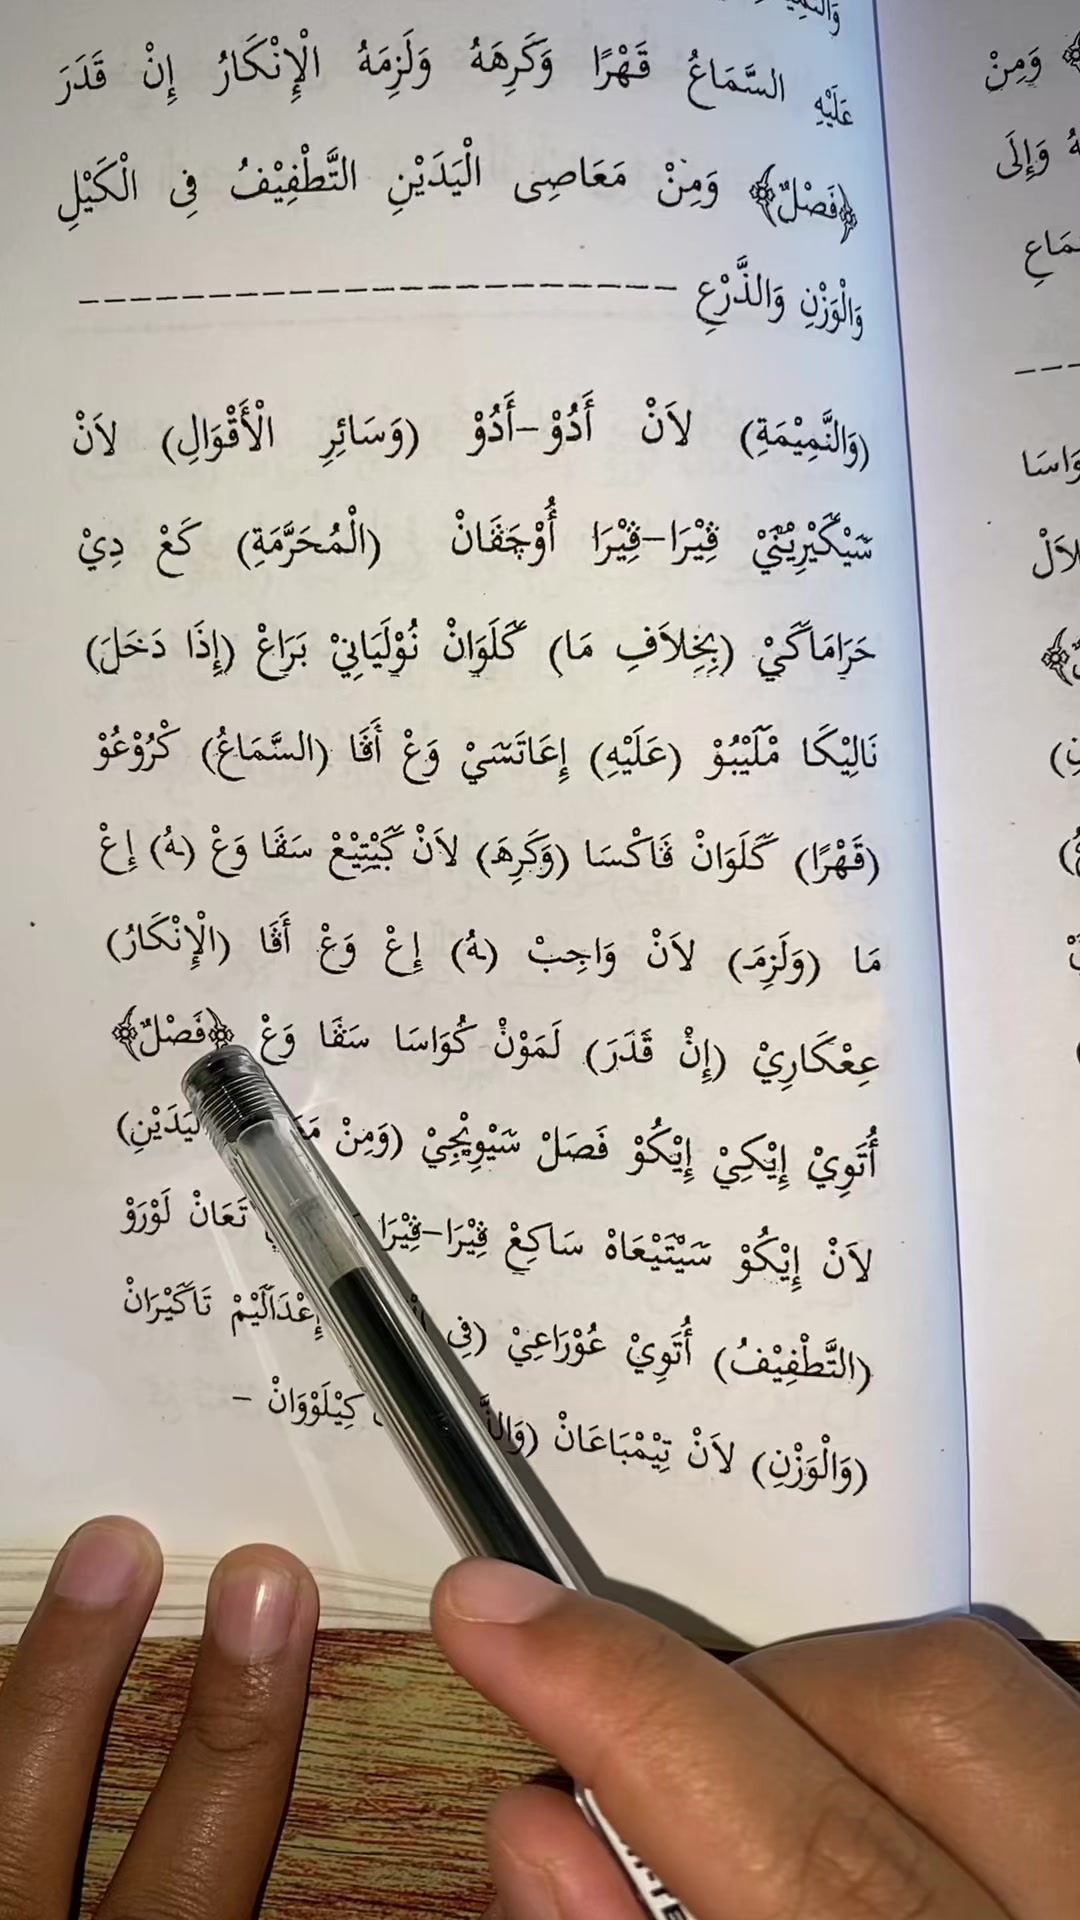 عَلَيْهِ السَّمَاعُ قَهْرًا وَكَرِهَهُ وَلَزِمَهُ الْإِنْكَارُ إِنْ قَدَرَ
﴿فَصْلٌ﴾ وَمِنْ مَعَاصِى الْيَدَيْنِ التَّطْفِيْفُ فِى الْكَيْلِ
وَالْوَزْنِ وَالذَّرْعِ
(وَالنَّمِيْمَةِ) لاَنْ أَدُوْ–أَدُوْ (وَسَائِرِ الْأَقْوَالِ) لاَنْ
سَيْكَيْرِيْنَيْ ڤِيْرَا–ڤِيْرَا أُوْچَڤَانْ (الْمُحَرَّمَةِ) كَعْ دِيْ
حَرَامَاكَيْ (بِخِلاَفِ مَا) كَلَوَانْ نُوْلَيَانِيْ بَرَاغْ (إِذَا دَخَلَ)
نَالِيْكَا مْلَيْبُوْ (عَلَيْهِ) إِعَاتَسَيْ وَغْ أَڤَا (السَّمَاعُ) كْرُوْعُوْ
(قَهْرًا) كَلَوَانْ ڤَاكْسَا (وَكَرِهَ) لاَنْ كَيْتِيْغْ سَڤَا وَغْ (ـهُ) إِغْ
مَا (وَلَزِمَ) لاَنْ وَاجِبْ (ـهُ) إِغْ وَغْ أَڤَا (الْإِنْكَارُ)
عِعْكَارِيْ (إِنْ قَدَرَ) لَمَوْنْ كُوَاسَا سَڤَا وَغْ ﴿فَصْلٌ﴾
أُتَوِيْ إِيْكِيْ إِيْكُوْ فَصَلْ سَيْوِيْجِيْ (وَمِنْ
لاَنْ إِيْكُوْ سَيْتَيْعَاهْ سَاكِعْ ڤِيْرَا–ڤِيْرَا تَعَانْ لَوْرَوْ
(التَّطْفِيْفُ) أُتَوِيْ عُوْرَاعِيْ (فِى إِعْدَالَيْمْ تَاكَيْرَانْ
(وَالْوَزْنِ) لاَنْ تِيْمْبَاعَانْ كِيْلَوْوَانْ –
وَمِنْ
وَإِلَى